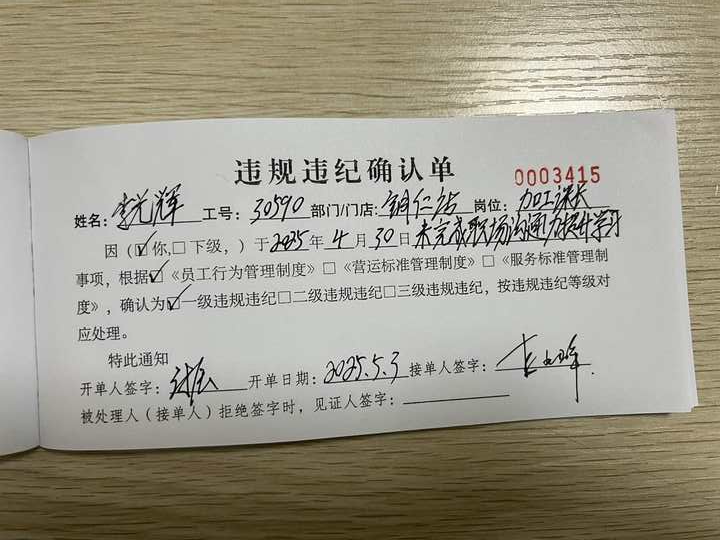 违规违纪确认单
0003415
姓名：李光辉 工号：30590 部门/门店：铜仁店 岗位：加工课长
因（☑你,□下级，）于2025年4月30日未完成职场沟通力提升学习
事项，根据☑《员工行为管理制度》□《营运标准管理制度》□《服务标准管理制
度》，确认为☑一级违规违纪□二级违规违纪□三级违规违纪，按违规违纪等级对
应处理。
特此通知
开单人签字： 开单日期：2025.5.3 接单人签字：
被处理人（接单人）拒绝签字时，见证人签字：